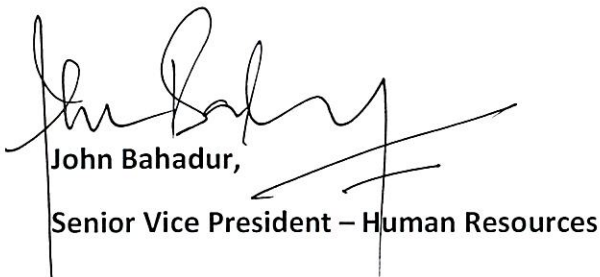 John Bahadur,
Senior Vice President – Human Resources